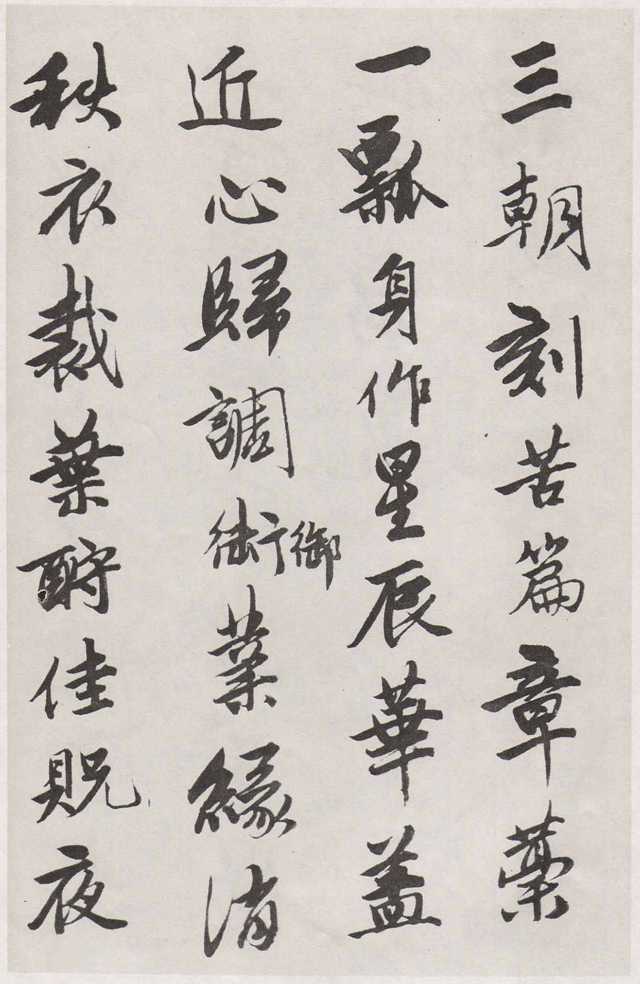 三朝刻苦篇章藁
一瓢身作星辰華蓋
近心歸調御業緣消
秋衣裁葉酧佳貺夜